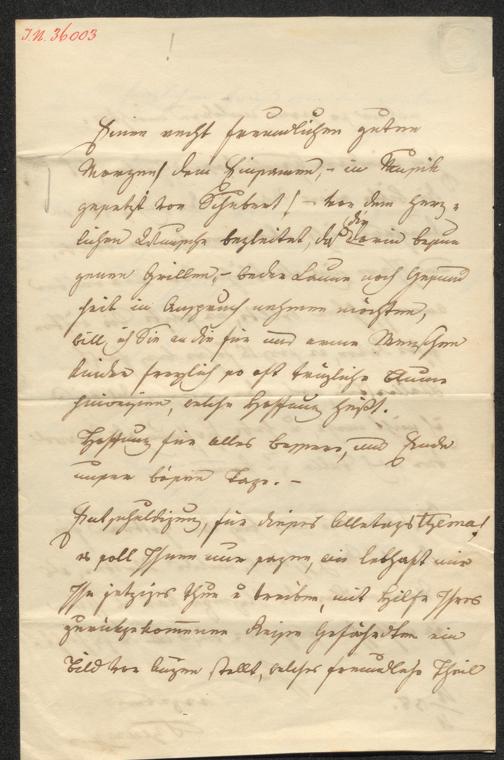 I.N. 36003
Einen recht freundlichen guten
Morgen! dem Einsamen, – in Musik
gesetzt von Schubert! – von dem herz-
lichen Wunsche begleitet, daß die darin besun
genen Grillen, – weder Laune noch Gesund
heit in Anspruch nehmen möchten,
will ich Sie an die für uns arme Menschen
kinder freylich so oft trügliche Blume
hinweisen, welche Hoffnung heißt.
Hoffnung für alles bessere, und Ende
unser bösen Tage. –
Entschuldigung, für dieses Alltagsthema!
es soll Ihnen nur sagen, wie lebhaft mir
Ihr jetziges Thun u treiben, mit Hilfe Ihres
zurückgekommenen Reise Gefährten ein
Bild vor Augen stellt, welches freundliche Theil